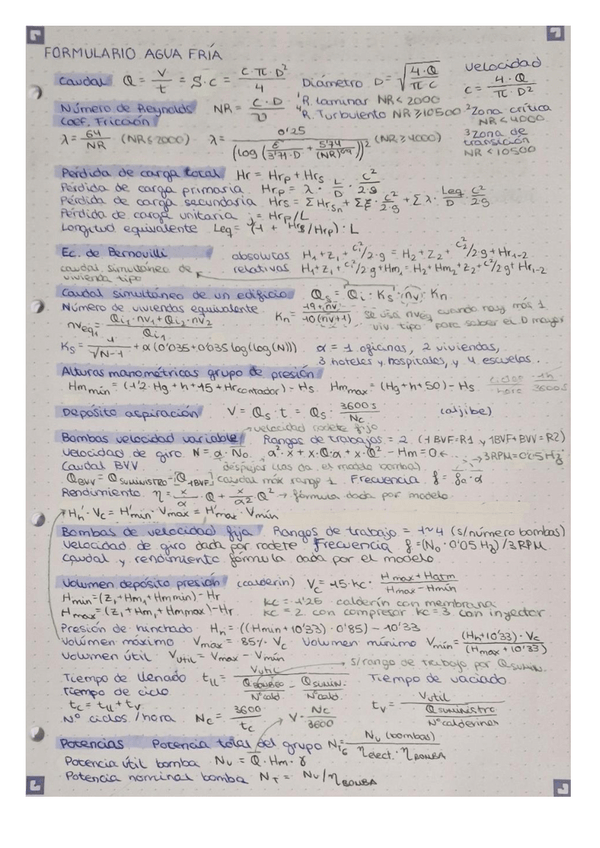 FORMULARIO AGUA FRÍA
Caudal Q = V/t = S·c = c·π·D²/4 Diámetro D = √(4·Q/π·c) velocidad c = 4·Q/π·D²
Número de Reynolds NR = c·D/ν ¹R. Laminar NR < 2000 ²Zona crítica NR < 4000
Coef. Fricción ⁴R. Turbulento NR ≥ 10500 ³Zona de transición NR < 10500
λ = 64/NR (NR ≤ 2000) λ = 0'25/(log(/3'71·D + 5'74/(NR)^0'9))² (NR ≥ 4000)
Pérdida de carga total Hr = Hrp + Hrs
Pérdida de carga primaria Hrp = λ · L/D · c²/2·g
Pérdida de carga secundaria Hrs = ΣHrsn + Σξ · c²/2·g + Σλ · Leq/D · c²/2·g
Pérdida de carga unitaria j = Hrp/L
Longitud equivalente Leq = (1 + Hrs/Hrp) · L
Ec. de Bernouilli absolutas H1+Z1+c1²/2·g = H2+Z2+c2²/2·g+Hr1-2
caudal simultáneo de vivienda tipo relativas H1+Z1+c1²/2·g+Hm1 = H2+Hm2+Z2+c2²/2·g+Hr1-2
Caudal simultáneo de un edificio Qs = Qi · Ks · nv · Kn
Número de viviendas equivalente Kn = 19+nv/10(nv+1) se usa nveq cuando hay más 1
nveqi = Qi1·nv1+Qi2·nv2/Qi1 viv. tipo para saber el D mayor
Ks = 1/√N-1 + α(0'035+0'035 log(log(N))) α = 1 oficinas, 2 viviendas,
3 hoteles y hospitales, y 4 escuelas.
Alturas manométricas grupo de presión
Hmmín = (1'2·Hg+h+15+Hrcontador) - Hs. Hmmax = (Hg+h+50) - Hs
Depósito aspiración V = Qs·t = Qs · 3600s/Nc (aljibe)
velocidad rodete fijo
Bombas velocidad variable Rangos de trabajos = 2 (1BVF=R1 y 1BVF+BVV=R2)
Velocidad de giro N = α·No. α²·x+x·Q·α+x·Q² - Hm = 0
Caudal BVV despejar (las da el modelo bomba)
QBVV = QSUMINISTRO - Q1BVF caudal máx rango 1 Frecuencia f = fo·α
Rendimiento η = x/α · Q + x/α2 · Q² → fórmula dada por modelo
Hh'·Vc = H'mín·Vmax = H'max·Vmín
Bombas de velocidad fija Rangos de trabajo = 1~4 (s/número bombas)
Velocidad de giro dada por rodete Frecuencia f = (No·0'05Hz)/3RPM
Caudal y rendimiento fórmula dada por el modelo
Volumen depósito presión (calderín) Vc = 15·Kc · Hmax+Hatm/Hmax-Hmín
Hmín = (Z1+Hm1+Hmmín) - Hr Kc = 1'25 calderín con membrana
Hmax = (Z1+Hm1+Hmmax) - Hr Kc = 2 con compresor Kc = 3 con inyector
Presión de hinchado Hh = ((Hmín+10'33)·0'85) - 10'33
Volúmen máximo Vmax = 85%·Vc Volumen mínimo Vmín = (Hh+10'33)·Vc/(Hmax+10'33)
Volumen útil Vútil = Vmax - Vmín
s/rango de trabajo por Qsumin.
Tiempo de llenado tll = Vútil/QBOMBEO/NºCald - QSUMIN./NºCald. Tiempo de vaciado
Tiempo de ciclo tv = Vútil/QSUMINISTRO/Nºcalderines
tc = tll+tv
Nº ciclos/hora Nc = 3600/tc V · Nc/3600
Potencias Potencia total del grupo NTG = Nu (bombas)/ηelect.·ηBOMBA
Potencia útil bomba Nu = Q·Hm·γ
Potencia nominal bomba NT = Nu/ηBOMBA